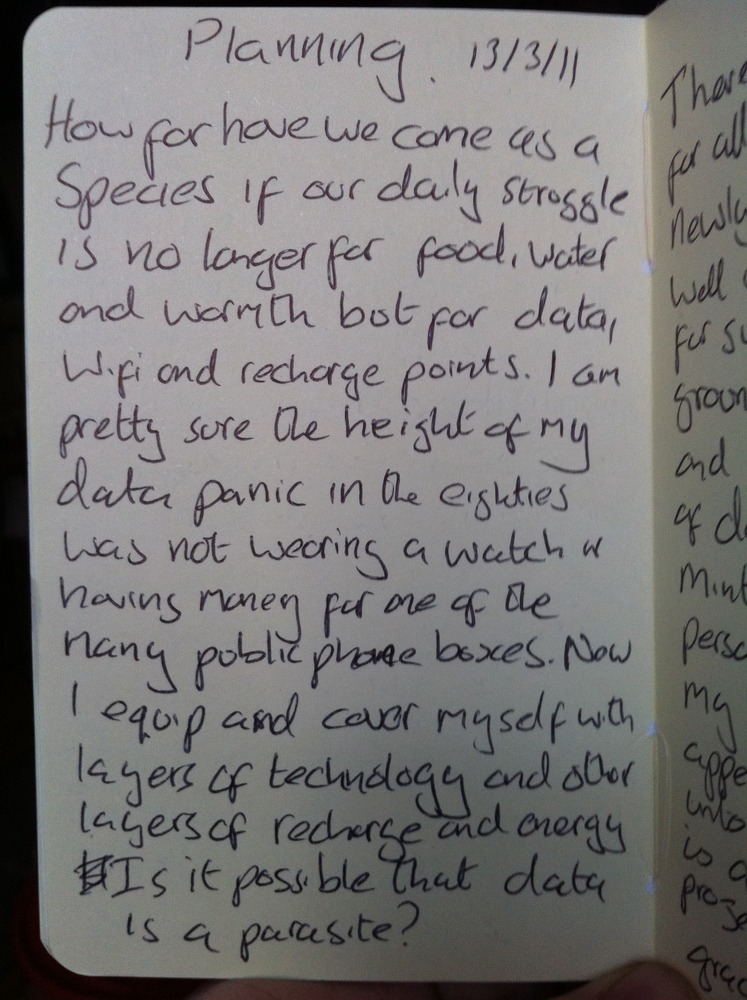 Planning. 13/3/11
How far have we come as a
Species if our daily struggle
is no longer for food, water
and warmth but for data,
Wifi and recharge points. I am
pretty sure the height of my
data panic in the eighties
was not wearing a watch or
having money for one of the
many public phone boxes. Now
I equip and cover myself with
layers of technology and other
layers of recharge and energy
Is it possible that data
is a parasite?
There
for all
newly
well
for su
groun
and
of da
Mint
perso
my
appe
unto
is a
proje
grac